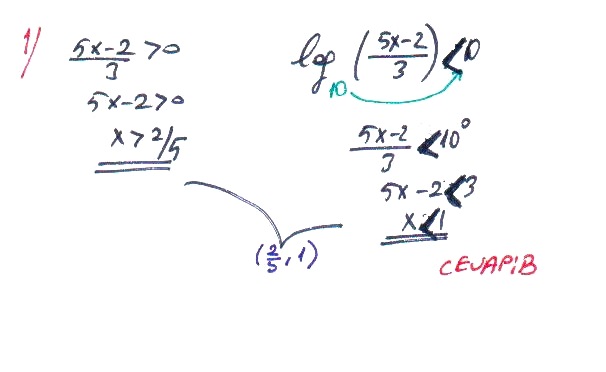 1)
(5x-2)/3 > 0
5x-2>0
x > 2/5
log₁₀ ((5x-2)/3) < 0
(5x-2)/3 < 10⁰
5x-2<3
x<1
(2/5, 1)
CEVAP:B